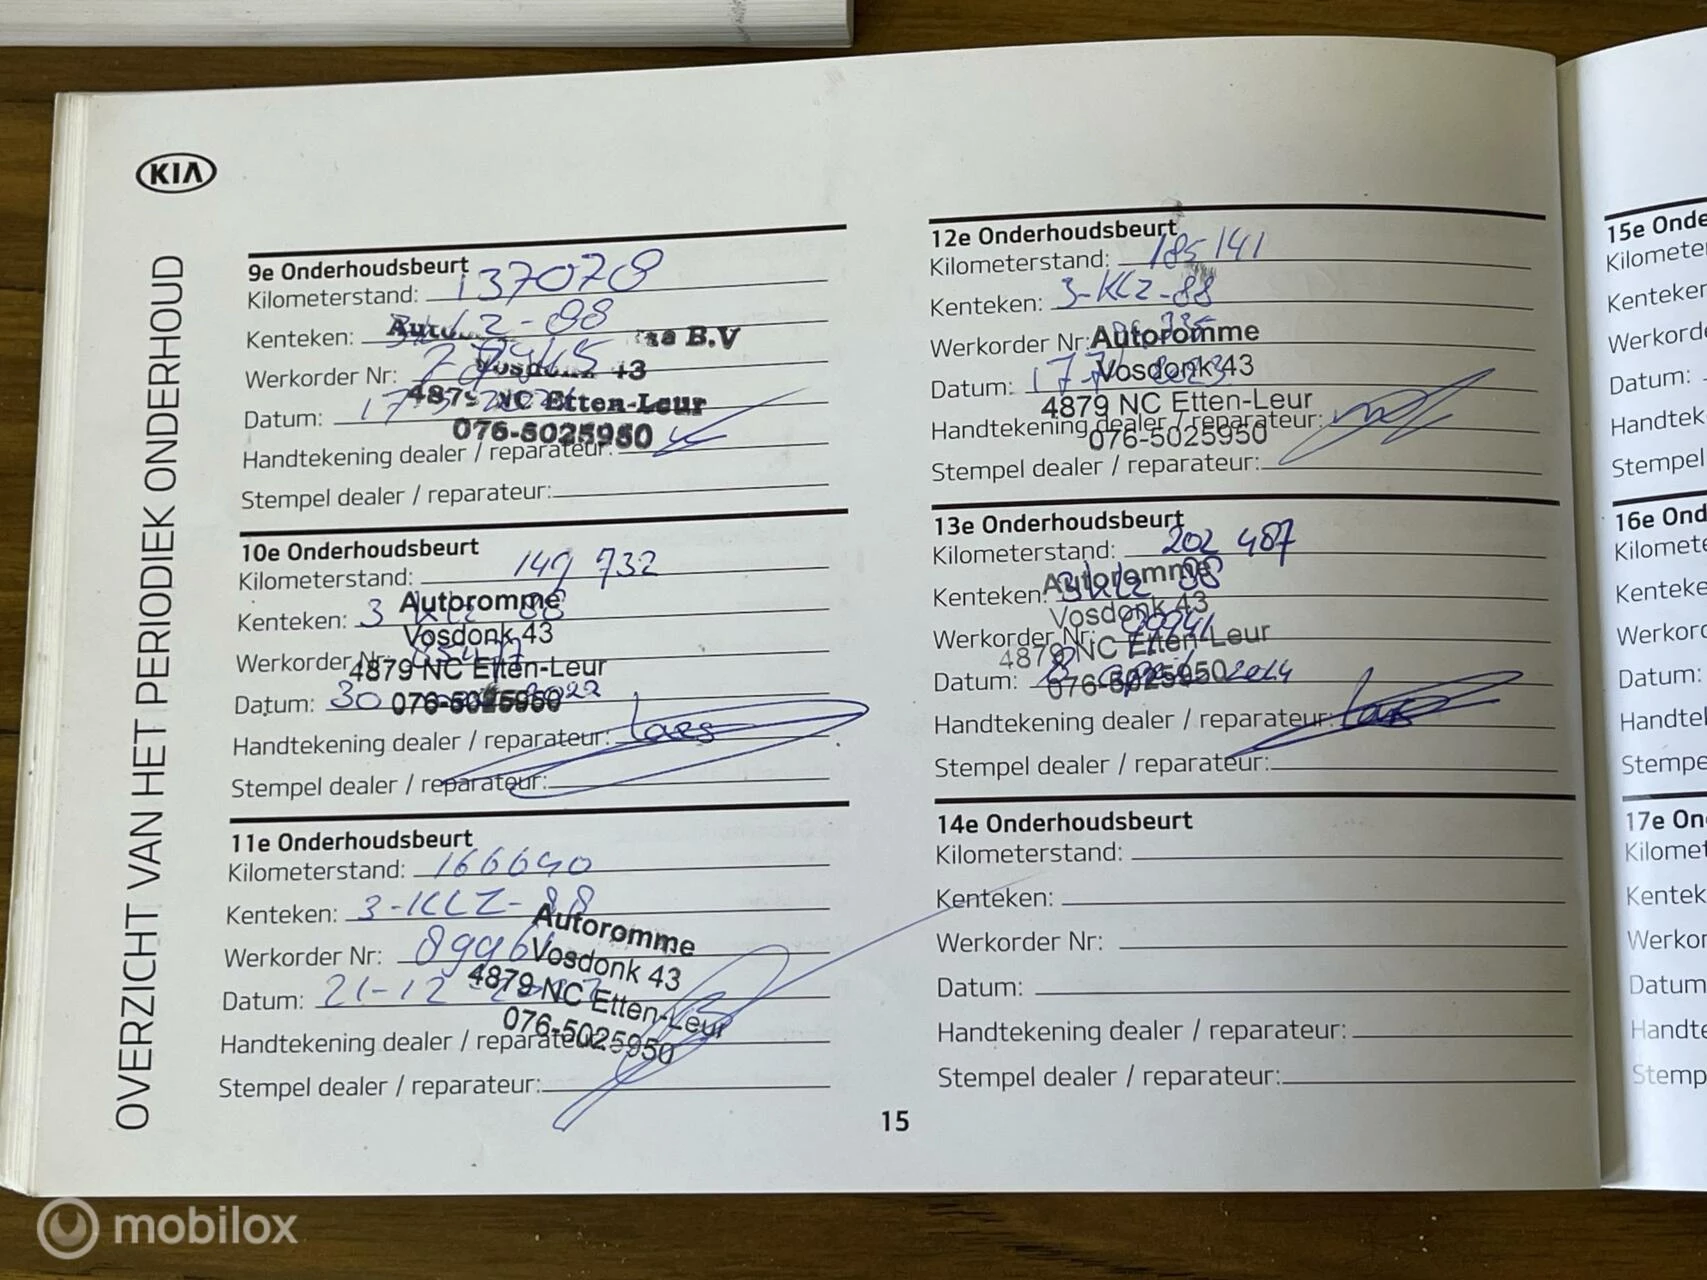 KIA
OVERZICHT VAN HET PERIODIEK ONDERHOUD
9e Onderhoudsbeurt
Kilometerstand: 137078
Kenteken: 88
B.V
Werkorder Nr:
43
Datum: 17
4879 NC Etten-Leur
076-5025950
Handtekening dealer / reparateur:
Stempel dealer / reparateur:
10e Onderhoudsbeurt
Kilometerstand: 149 732
Autoromme
Kenteken: 3 KLZ 88
Vosdonk 43
Werkorder Nr:
4879 NC Etten-Leur
Datum: 30 2022
076-5025950
Handtekening dealer / reparateur:
Stempel dealer / reparateur:
11e Onderhoudsbeurt
Kilometerstand: 166640
Kenteken: 3-KLZ-88
Autoromme
Werkorder Nr: 8996
Vosdonk 43
Datum: 21-12
4879 NC Etten-Leur
076-5025950
Handtekening dealer / reparateur:
Stempel dealer / reparateur:
12e Onderhoudsbeurt
Kilometerstand: 185141
Kenteken: 3-KLZ-88
Werkorder Nr:
Autoromme
Datum: 17-7 2023
Vosdonk 43
4879 NC Etten-Leur
Handtekening dealer / reparateur:
076-5025950
Stempel dealer / reparateur:
13e Onderhoudsbeurt
Kilometerstand: 202 487
Autoromme
Kenteken: 3KLZ 88
Vosdonk 43
Werkorder Nr:
4879 NC Etten-Leur
Datum: 8 2024
076-5025950
Handtekening dealer / reparateur:
Stempel dealer / reparateur:
14e Onderhoudsbeurt
Kilometerstand:
Kenteken:
Werkorder Nr:
Datum:
Handtekening dealer / reparateur:
Stempel dealer / reparateur:
15
15e Onde
Kilomete
Kenteken
Werkord
Datum:
Handtek
Stempel
16e Ond
Kilomete
Kenteke
Werkord
Datum:
Handtek
Stempe
17e On
Kilomet
Kentek
Werkor
Datum
Handte
Stemp
mobilox